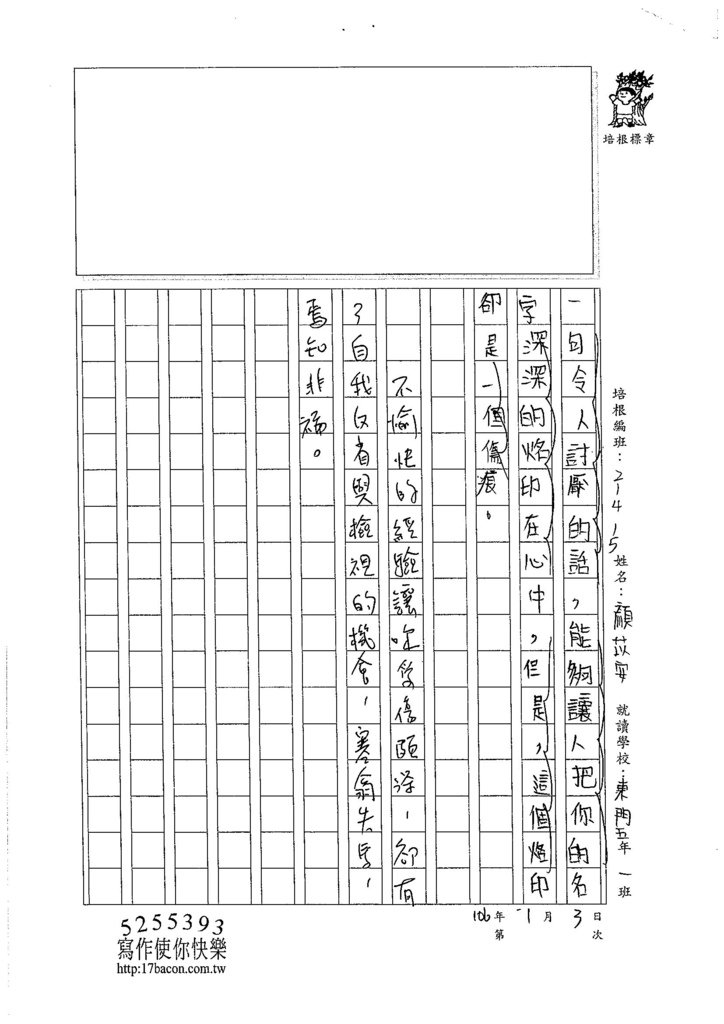 培根標章
培根編班：21415 姓名：顏苡安 就讀學校：東門五年一班
一句令人討厭的話，能夠讓人把你的名
字深深的烙印在心中，但是，這個烙印
卻是一個傷痕。
不愉快的經驗讓受傷頗深，卻有
了自我反省與檢視的機會，塞翁失馬，
焉知非福。
106年1月3日
第 次
5255393
寫作使你快樂
http:17bacon.com.tw